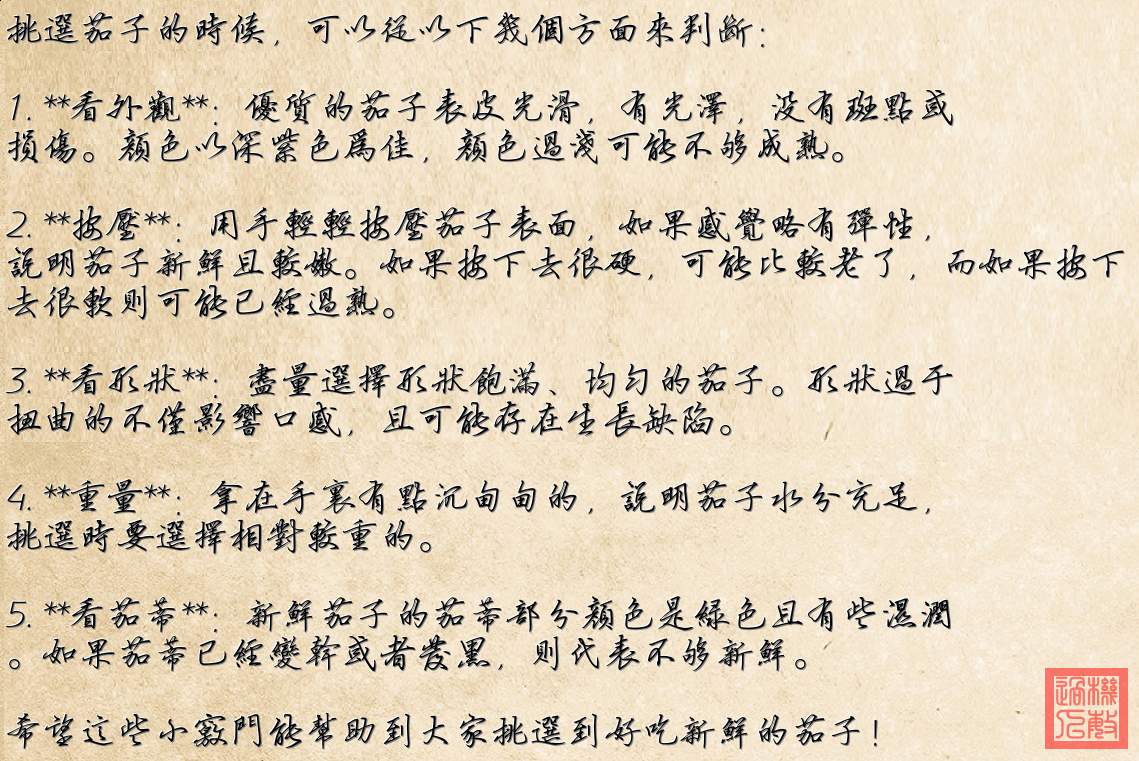 挑選茄子的時候，可以從以下幾個方面來判斷：
1. **看外觀**：優質的茄子表皮光滑，有光澤，沒有斑點或
損傷。顏色以深紫色爲佳，顏色過淺可能不够成熟。
2. **按壓**：用手輕輕按壓茄子表面，如果感覺略有彈性，
說明茄子新鮮且較嫩。如果按下去很硬，可能比較老了，而如果按下
去很軟則可能已經過熟。
3. **看形狀**：盡量選擇形狀飽滿、均勻的茄子。形狀過于
扭曲的不僅影響口感，且可能存在生長缺陷。
4. **重量**：拿在手裏有點沉甸甸的，說明茄子水分充足，
挑選時要選擇相對較重的。
5. **看茄蒂**：新鮮茄子的茄蒂部分顏色是綠色且有些濕潤
。如果茄蒂已經變幹或者發黑，則代表不够新鮮。
希望這些小竅門能幫助到大家挑選到好吃新鮮的茄子！